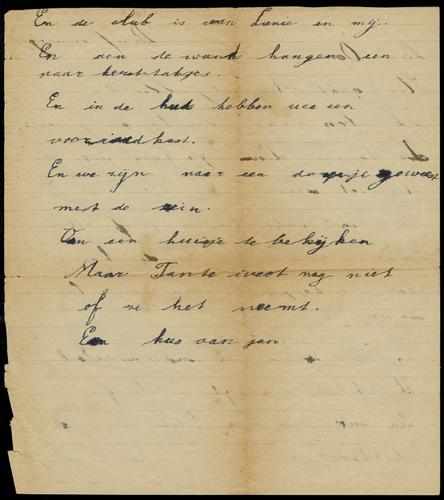 En de club is van Lenie en mij.
En aan de wand hangen een
naar kersttakjes.
En in de hut hebben we een
voorraadkast.
En we zijn naar een dorpje geweest
mest de
Om een huisje te bekijken
Maar Tante weet nog niet
of ze het neemt.
Een kus van jan